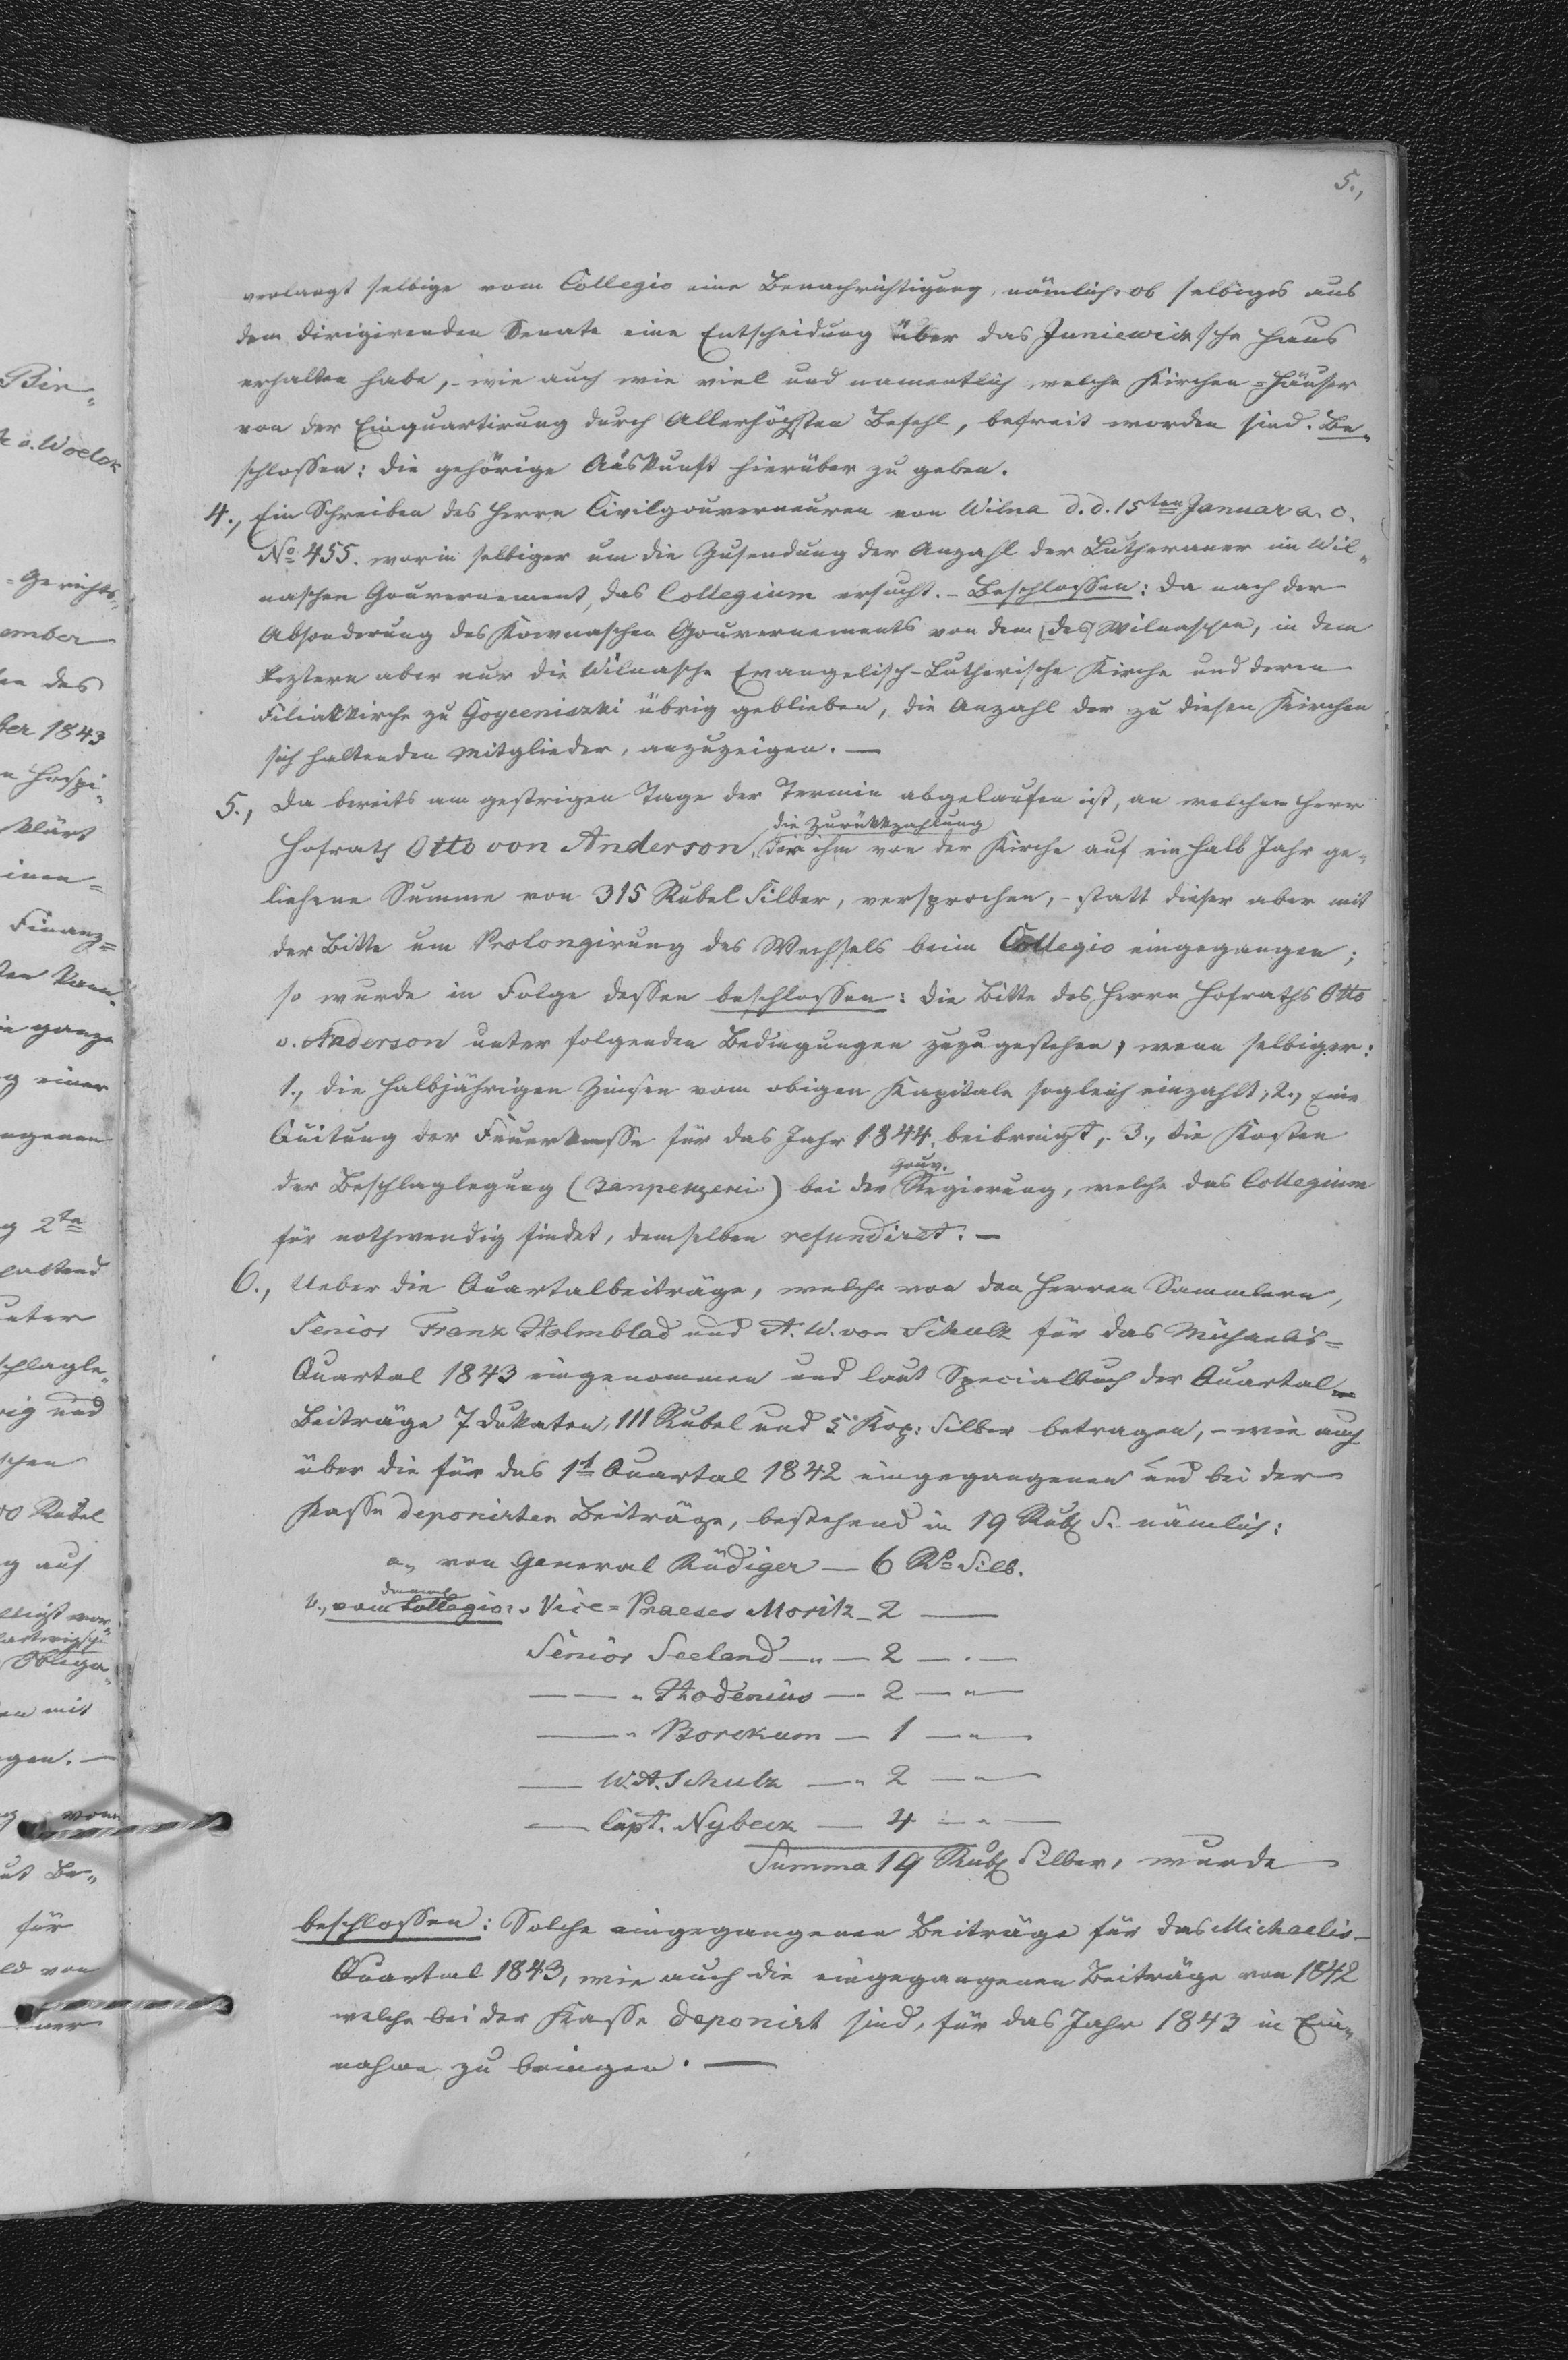 5.,
verlangt selbige vom Collegio eine Benachrichtigung, nämlich: ob selbiges aus
dem dirigirenden Senate eine Entscheidung über das Juniewicz'sche Haus
erhalten habe, - wie auch wie viel und namentlich welche Kirchen-Häuser
von der Einquartirung durch Allerhöchsten Befehl, befreit worden sind. Be-
schlossen: die gehörige Auskunft hierüber zu geben.
4., Ein Schreiben des Herrn Civilgouverneuren von Wilna d. d. 15ten Januar a. c.
No 455. worin selbiger um die Zusendung der Anzahl der Lutheraner im Wil-
naschen Gouvernement, das Collegium ersucht. - Beschlossen: da nach der
Absonderung des Kownaschen Gouvernements von dem [des] Wilnaschen, in dem
letztern aber nur die Wilnasche Evangelisch-Lutherische Kirche und deren
Filialkirche zu Goyceniszki übrig geblieben, die Anzahl der zu diesen Kirchen
sich haltenden Mitglieder, anzuzeigen. —
5., Da bereits am gestrigen Tage der Termin abgelaufen ist, an welchem Herr
die Zurückzahlung
Hofrath Otto von Anderson, der ihm von der Kirche auf ein halb Jahr ge-
liehene Summe von 315 Rubel Silber, versprochen, - statt dieser aber mit
der Bitte um Prolongirung des Wechsels beim Collegio eingegangen;
so wurde in Folge dessen beschlossen: die Bitte des Herrn Hofraths Otto
v. Anderson unter folgenden Bedingungen zuzugestehen, wenn selbiger:
1., die halbjährigen Zinsen vom obigen Kapitale sogleich einzahlt; 2., eine
Quitung der Feuerkasse für das Jahr 1844, beibringt, 3., die Kosten
Gouv.
der Beschlaglegung (Запрещенiй) bei der Regierung, welche das Collegium
für nothwendig findet, demselben refundirt. —
6., Ueber die Quartalbeiträge, welche von den Herren Sammlern,
Senior Franz Holmblad und A. W. von Schulz für das Michaelis-
Quartal 1843 eingenommen und laut Specialbuch der Quartal-
Beiträge 7 Dukaten, 111 Rubel und 5 Kop: Silber betragen, - wie auch
über die für das 1t Quartal 1842 eingegangenen und bei der
Kasse deponirten Beiträge, bestehend in 19 Rub S. nämlich:
a., von General Rüdiger — 6 Ro Silb.
b., vom Collegio: Vice-Praeses Moritz — 2 —
Senior Seeland — " — 2 — " —
— — " Hodenius — 2 — " —
— — " Borckum — 1 — " —
— W. A. Schulz — " 2 — " —
— Capt. Nybeck — 4 — " —
Summa 19 Rub Silber, wurde
beschlossen: Solche eingegangenen Beiträge für das Michaelis-
Quartal 1843, wie auch die eingegangenen Beiträge von 1842
welche bei der Kasse deponirt sind, für das Jahr 1843 in Ein-
nahme zu bringen. —